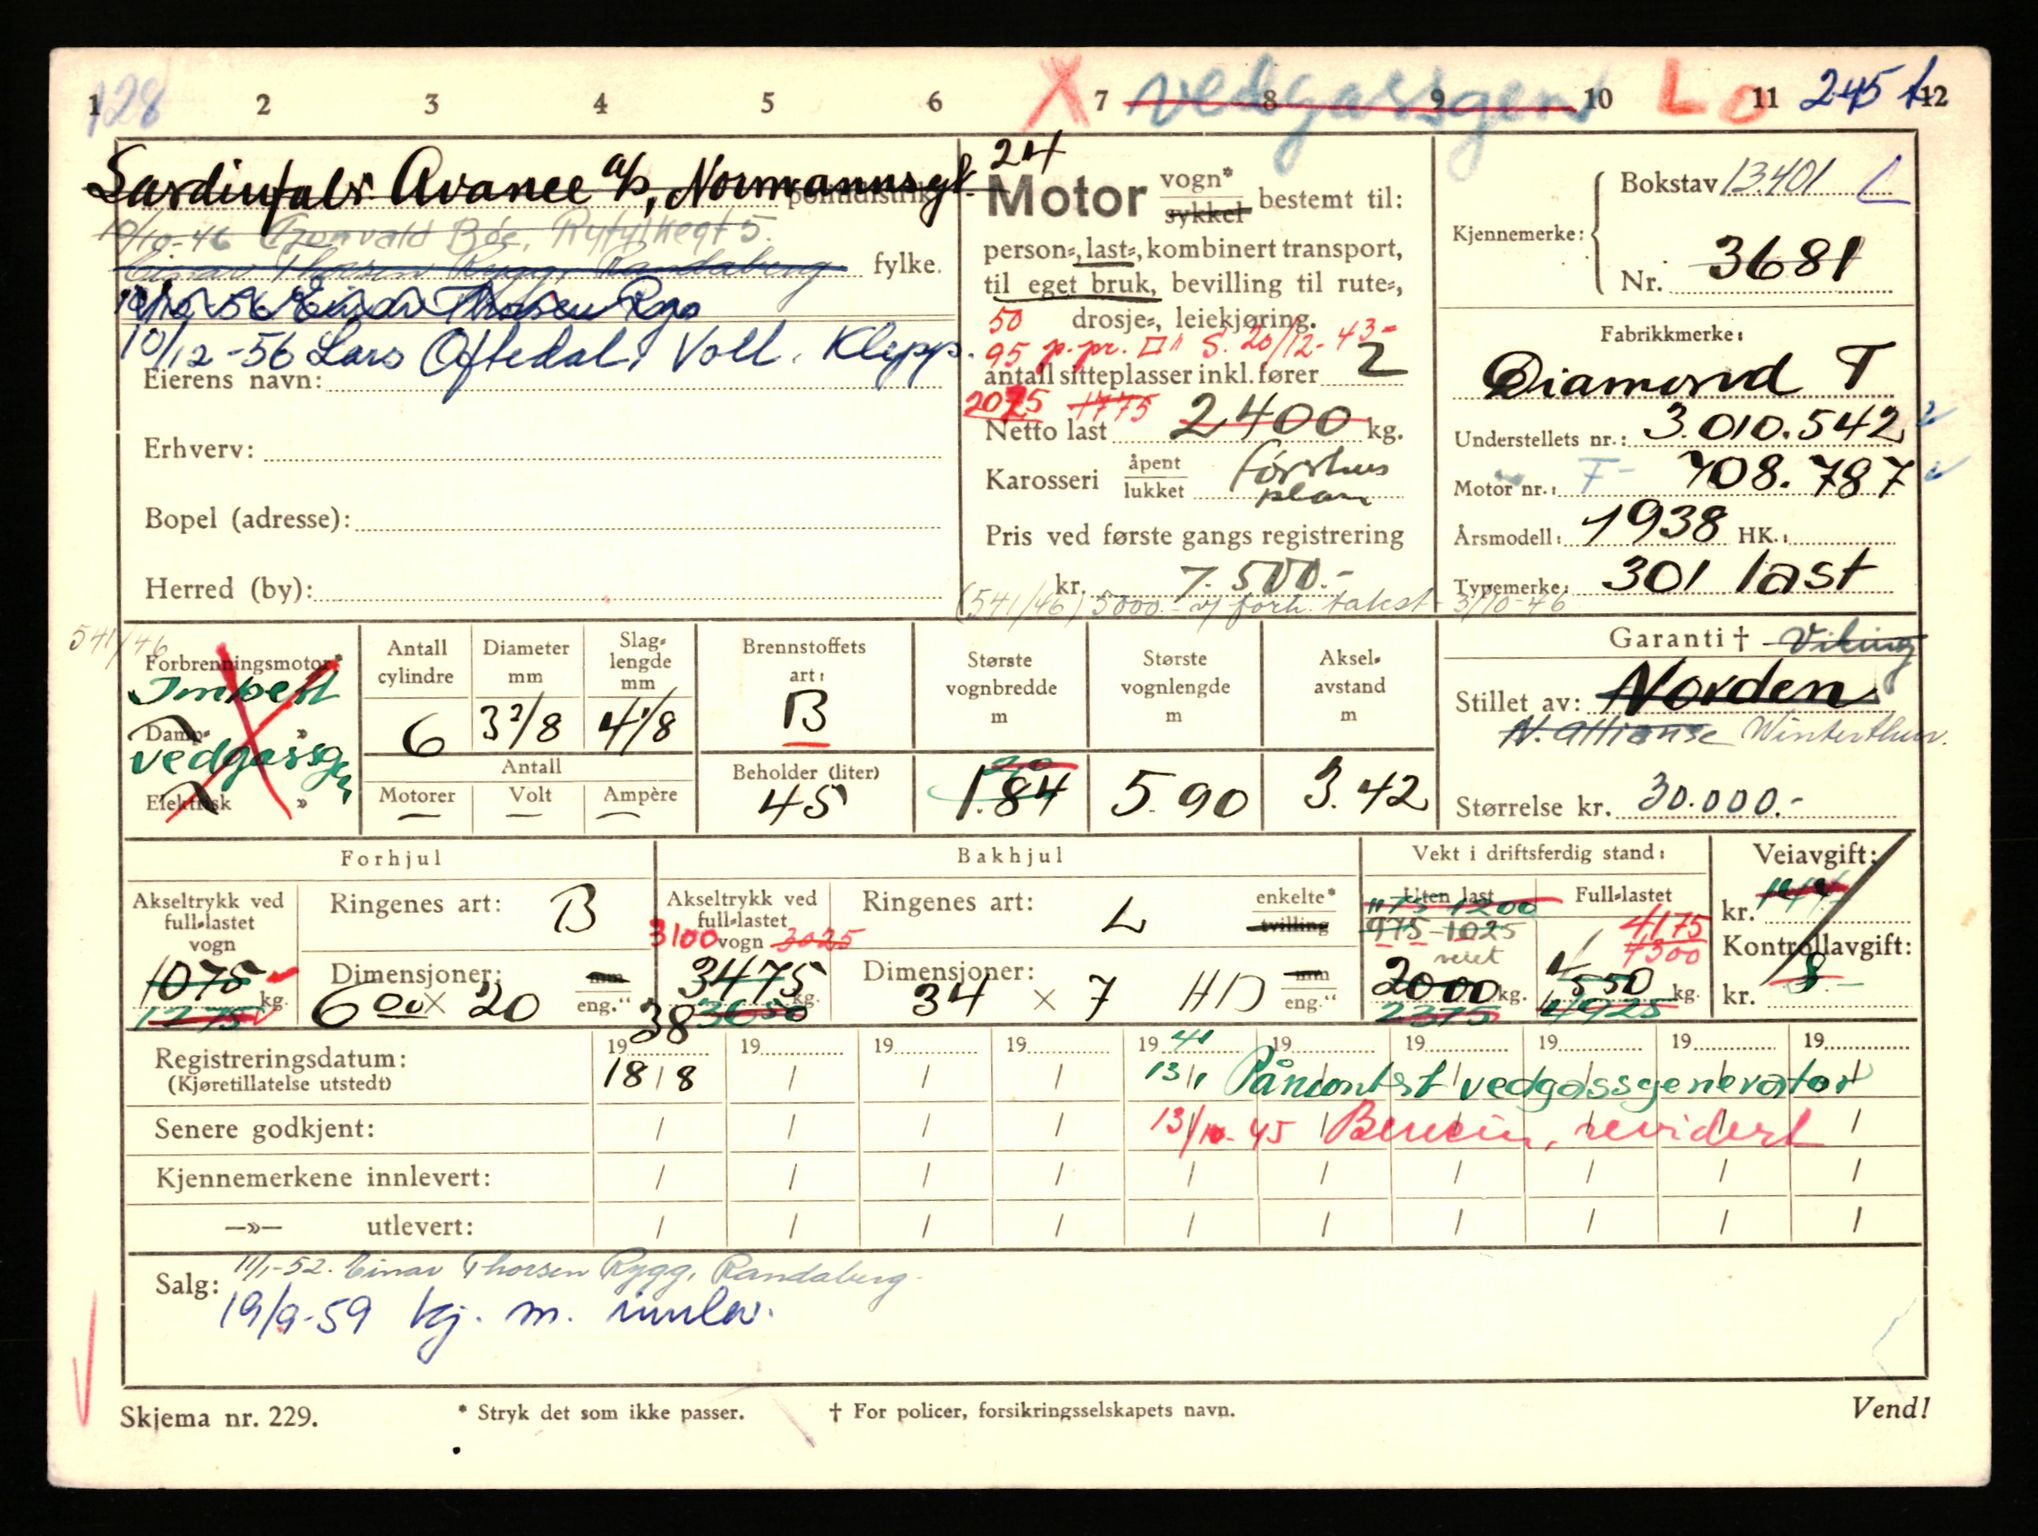 128
1 2 3 4 5 6 X 7 vedgassgen 8 9 10 L o 11 245 t 12
Sardinfabr. Avance a/s, Normannsgt. 24
politidistrikt
19/10-46 Tronvald Bøe, Ryfylkegt 5.
Einar Thorsen Rygg, Randaberg fylke.
Einar Thorsen Rygg
10/12-56 Lars Oftedal, Voll, Klepp.
Eierens navn:
Erhverv:
Bopel (adresse):
Herred (by):
Motor vogn* sykkel bestemt til:
person-, last-, kombinert transport,
til eget bruk, bevilling til rute-,
50 drosje-, leiekjøring.
95 p. pr. □" S. 20/12-43-
antall sitteplasser inkl. fører 2
2025 1775
Netto last 2400 kg.
Karosseri åpent lukket førerhus plan
Pris ved første gangs registrering
kr. 7.500.-
(541/46) 5000.- v/ forh. takst 31/10-46
Kjennemerke: Bokstav 13401
Nr. 3681
Fabrikkmerke:
Diamond T
Understellets nr.: 3.010.542
Motor nr.: F- 708.787
Årsmodell: 1938 HK.:
Typemerke: 301 last
541/46
Forbrenningsmotor*
Imbert
Damp- »
vedgassgen
Elektrisk »
Antall cylindre 6
Diameter mm 3 3/8
Slaglengde mm 4 1/8
Antall
Motorer — Volt — Ampère —
Brennstoffets art: B
Beholder (liter) 45
Største vognbredde m 1.84
Største vognlengde m 5.90
Akselavstand m 3.42
Garanti † Viking
Stillet av: Norden
N. Allianse Winterthur.
Størrelse kr. 30.000.-
Forhjul
Akseltrykk ved full-lastet vogn
1075
1275 kg.
Ringenes art: B
Dimensjoner: 6 00 × 20 mm eng."
Bakhjul
Akseltrykk ved full-lastet vogn
3100 3025
3475
3650 kg.
Ringenes art: L enkelte* tvilling
Dimensjoner: 34 × 7 HD mm eng."
Vekt i driftsferdig stand:
Uten last Full-lastet
1175 1200
975-1025
veiet
2000 kg.
2375
4175
4300
4550 kg.
4925
Veiavgift:
kr. 144
Kontrollavgift:
kr. 8.-
Registreringsdatum: 1938 19 19 19 1941 19 19 19 19 19
(Kjøretillatelse utstedt) 18/8 / / / 13/1 Påmontert vedgassgenerator
Senere godkjent: / / / / 13/10-45 Bensin, revidert /
Kjennemerkene innlevert: / / / / / / / / / /
—»— utlevert: / / / / / / / / / /
Salg: 11/1-52. Einar Thorsen Rygg, Randaberg.
19/9-59 kj. m. innlev.
Skjema nr. 229. * Stryk det som ikke passer. † For policer, forsikringsselskapets navn. Vend!